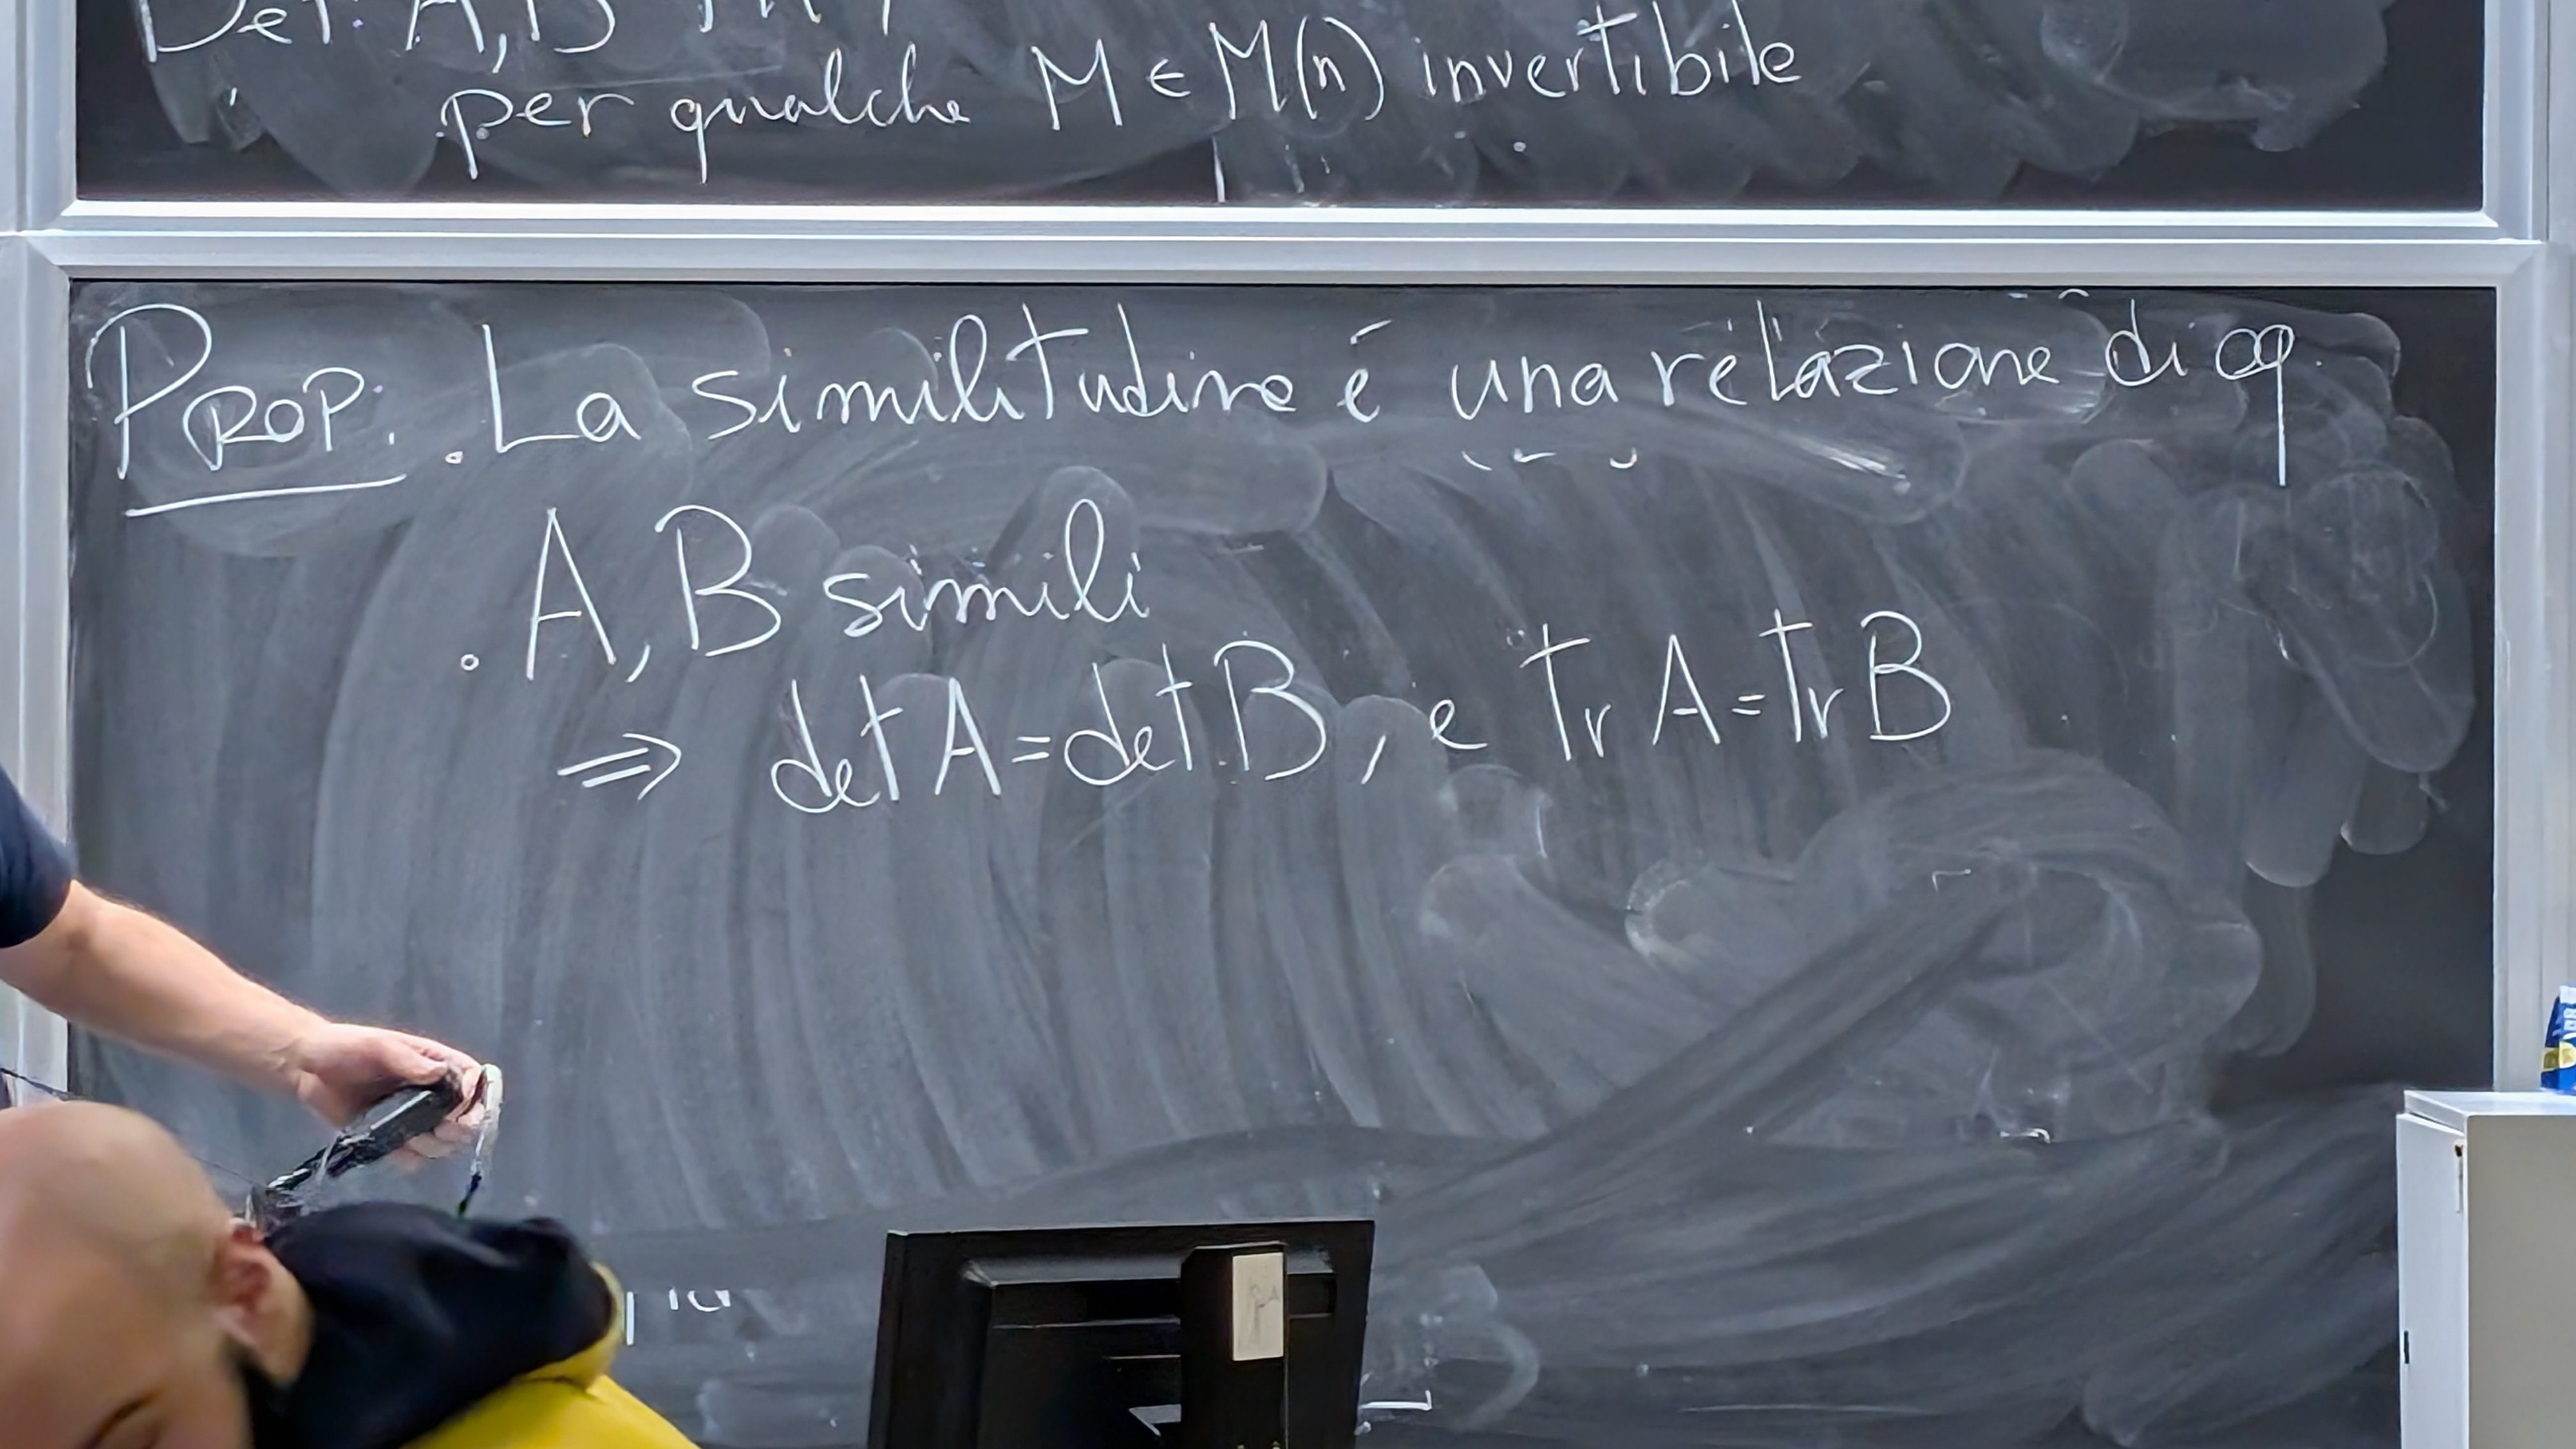 Def: A, B
per qualche M ∈ M(n) invertibile
PROP: . La similitudine é una relazione di eq.
. A, B simili
⇒ det A = det B, e Tr A = Tr B